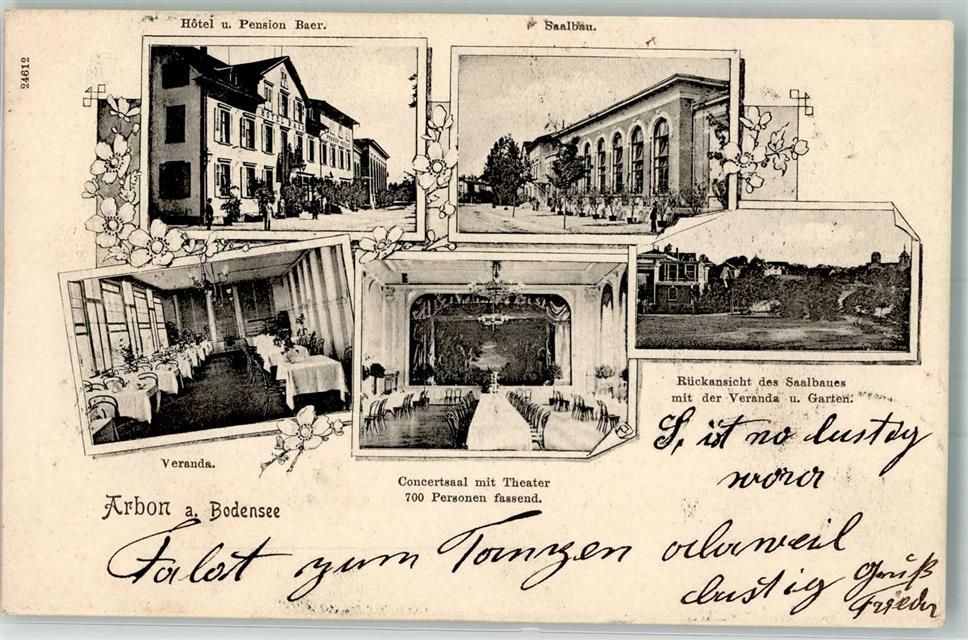 Hôtel u. Pension Baer.
Saalbau.
24612
HÔTEL
Rückansicht des Saalbaues
mit der Veranda u. Garten.
Veranda.
Concertsaal mit Theater
700 Personen fassend.
Arbon a. Bodensee
S, ist no lustig
wora
zum Tanzen
lustig Gruß
Frieda